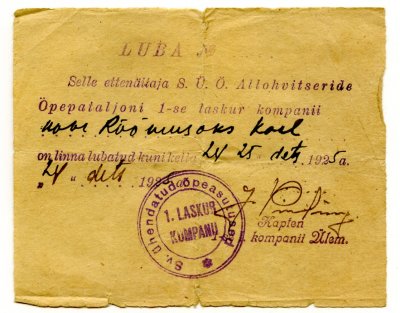 LUBA №
Selle ettenäitaja S. Ü. Õ. Allohvitseride
Õpepataljoni 1-se laskur kompanii
Rõõmusoks Karl
on linna lubatud kuni kella 24 25 dets 1925 a.
" 24 " dets 192
Kapten
1-se l. kompanii Ülem.
Sv. Ühendatud õpeasutused
1. LASKUR
KOMPANII